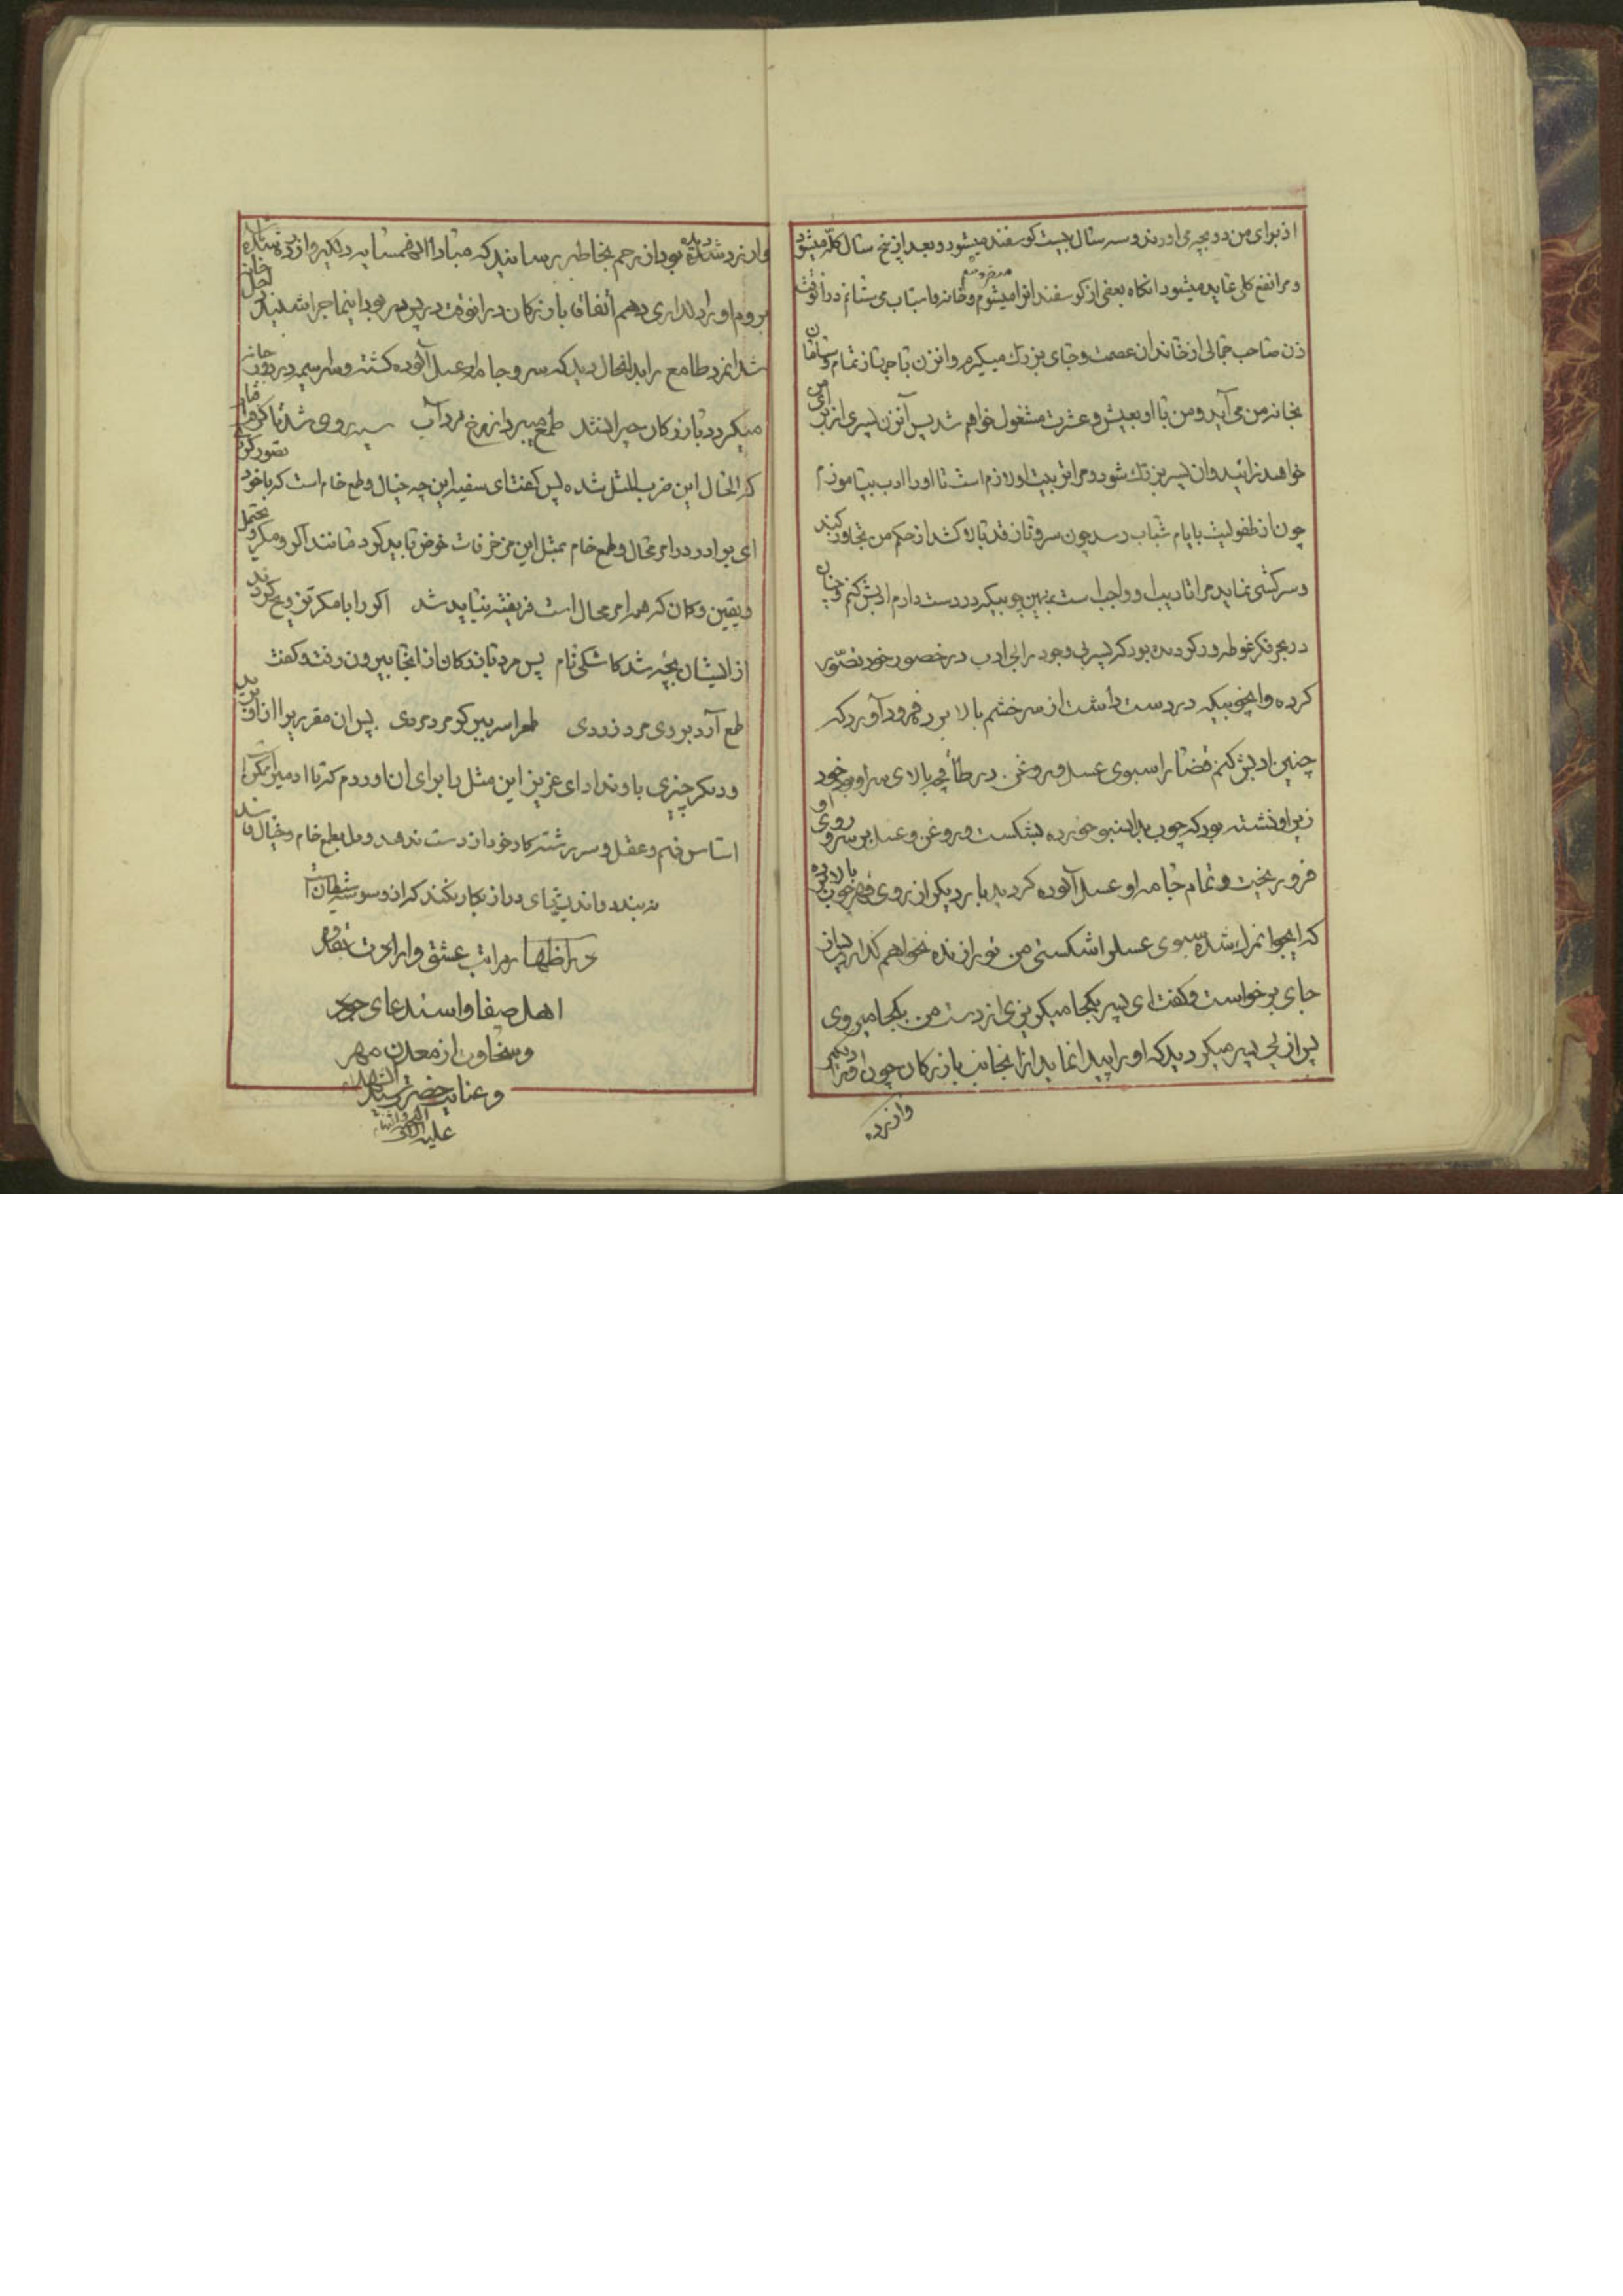 از برای من دو بچه می اورند و سه سال بیست کوسفند میشود و بعد از پنج سال کله میشود
و مرا نفع کلی عاید میشود انکاه بعضی از کوسفند انرا میفروشم و خانه با اسباب می ستانم در انوقت
زن صاحب جمالی از خاندان عصمت و جای بزرك میکیرم و انزن با جهاز تمام و سامان
بخانه من می آید و من با او بعیش و عشرت مشغول خواهم شد پس آنزن پسری از برای من
خواهد زائید و ان پسر بزرك شود و مرا تربیت او لازم است تا او را ادب بیاموزم
چون از طفولیت بایام شباب رسد چون سرو ناز قد بالا کشد از حکم من تجاوز کند
و سرکشی نماید مرا تادیب او واجب است بهمین چوبیکه در دست دارم ادبش کنم و چنان
در بحر فکر غوطه ور کردیده بود که پسر بی وجود را بی ادب در حضور خود تصور
کرده و ان چوبیکه در دست داشت از سر خشم بالا برد فرود آورد که
چنین ادبش کنم قضا را سبوی عسل و روغن در طاقچه بالای سر او بود خود
زیر او نشسته بود که چوب بدان سبو خورده بشکست و روغن و عسل بر سر و روی او
فرو ریخت و تمام جامه او عسل آلوده کردید بار دیکر از روی قهر چوب بالا برده
که ایجوانمرك شده سبوی عسلرا شکستی من تو را زنده نخواهم کذارد پس از
جای برخواست و کفت ای پسر بکجا میکریزی از دست من بکجا میروی
پس از پی پسر میکردید که او را پیدا نماید از انجانب بازرکان چون او را دیکر
وازرده
وازرده شده بود از رحم بخاطر رسانید که مبادا این همسایه دلکیر و ازرده شده باشد
بروم او را دلداری دهم اتفاقا بازرکان در انوقت در پس در بود اینماجرا شنید داخل خانه
شد انمرد طامع را بدانحال دید که سر و جامه او عسل آلوده کشته و سراسیمه در دور خانه
میکردد بازرکان حیران شد طمع میبرد از رخ مرد آب
که الحال این ضرب المثل شده پس کفت ای سفیه این چه خیال و طمع خام است که با خود تصور کرده
ای برادر در امر محال و طمع خام بمثل این مزخرفات خوض نباید کرد مانند اکر و مکر و محتمل
و یقین و کمان که همه امر محال است فریفته نباید شد اکر را با مکر تزویج کردند
از ایشان بچه شد کاشکی نام پس مرد بازرکان از انجا بیرون رفت و کفت
طمع آرد بروی مرد زردی طمع را سر ببر کر مرد مردی پس ان مقرری را از او برید
و دیکر چیزی باو نداد ای عزیز این مثل را برای ان اوردم که تا ادمی را
اساس فهم و عقل و سر رشته کار خود از دست ندهد و دل بطمع خام و خیال فاسد
نه بندد و اندیشهای دور از کار نکند که از وسوسه شیطان است
در اظهار مراتب عشق و ارادت
اهل صفا و استدعای جود
و سخاوت از معدن مهر
و عنایت حضرت سید الشهداء
علیه